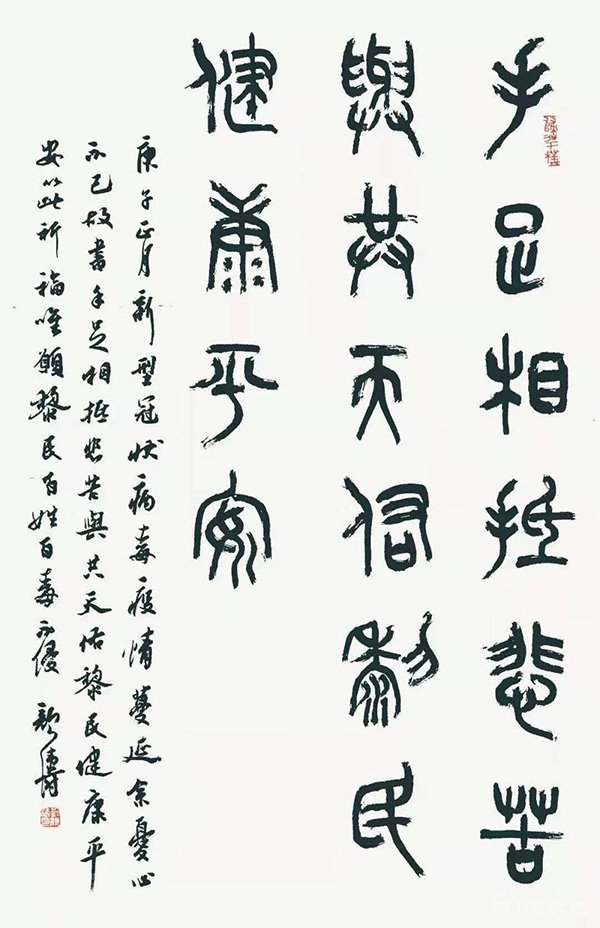 手足相抵悲苦
與共天佑黎民
健康平安
庚子正月新型冠狀病毒疫情蔓延余憂心
不已故書手足相抵悲苦與共天佑黎民健康平
安以此祈福唯願黎民百姓百毒不侵